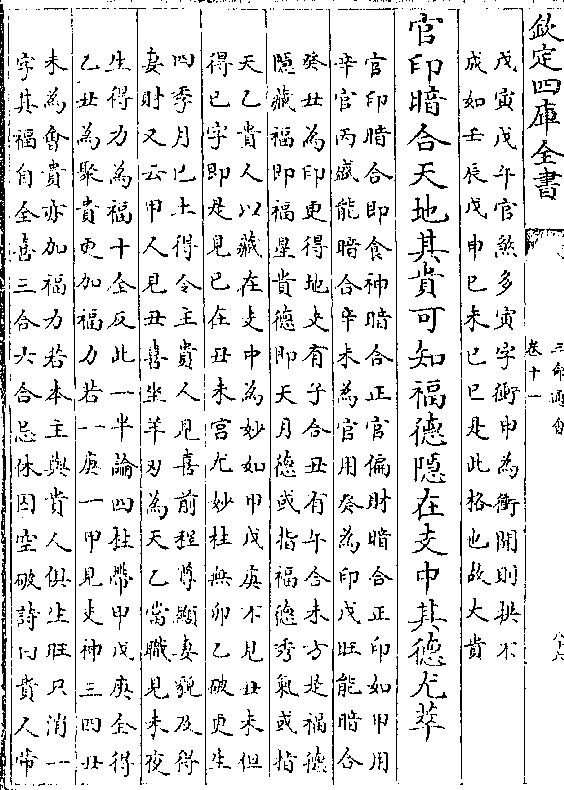 欽定四庫全書
戊寅戊午官煞多寅字衝申為衝開則拱不
成如壬辰戊申巳未巳巳是此格也故大貴
官印暗合天地其貴可知福德隱在支中其德尤萃
官印暗合即食神暗合正官偏財暗合正印如甲用
辛官丙蔵能暗合辛未為官用癸為印戊旺能暗合
癸丑為印更得地支有子合丑有午合未方是福德
隱藏福即福星貴德即天月德或指福德秀氣或指
天乙貴人以藏在支中為妙如甲戊庚不見丑未但
得巳字即是見巳在丑未宮尤妙柱無卯乙破更生
四季月巳土得令主貴人見喜前程尊顯妻貌及得
妻財又云甲人見丑喜坐羊刃為天乙當職見未夜
生得力為福十全反此一半論四柱帶甲戊庚全得
乙丑為聚貴更加福力若一庚一甲見支神三四丑
未為會貴亦加福力若本主與貴人俱生旺只消一
字其福自全喜三合六合忌休囚空破詩曰貴人帝
三命通會
卷十一